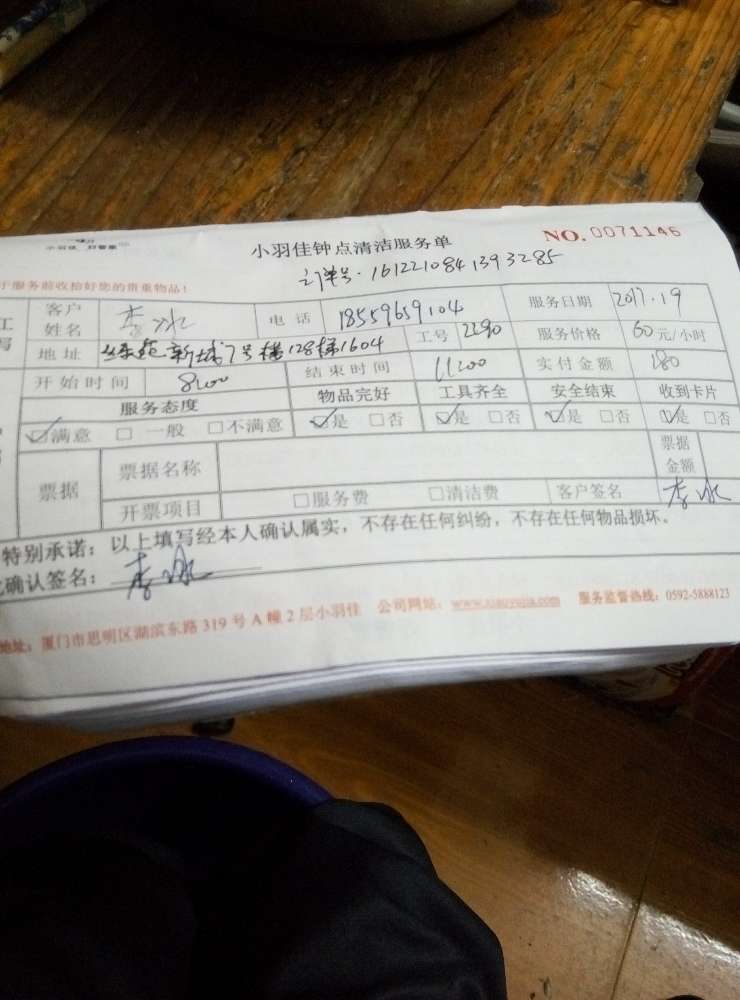 小羽佳钟点清洁服务单
NO. 0071146
订单号·161221084139 3285
于服务前收拾好您的贵重物品!
客户姓名 李冰 电话 18559659104 服务日期 2017.19
地址 新城7号楼128梯1604 工号 2290 服务价格 60元/小时
开始时间 8:00 结束时间 11:00 实付金额 180
服务态度 物品完好 工具齐全 安全结束 收到卡片
☑满意 □一般 □不满意 ☑是 □否 ☑是 □否 ☑是 □否 ☑是 □否
票据 票据名称 票据金额
开票项目 □服务费 □清洁费 客户签名 李冰
特别承诺:以上填写经本人确认属实,不存在任何纠纷,不存在任何物品损坏。
确认签名:李冰
地址:厦门市思明区湖滨东路319号A幢2层小羽佳 公司网站:www.xiaoyujia.com 服务监督热线:0592-5888123